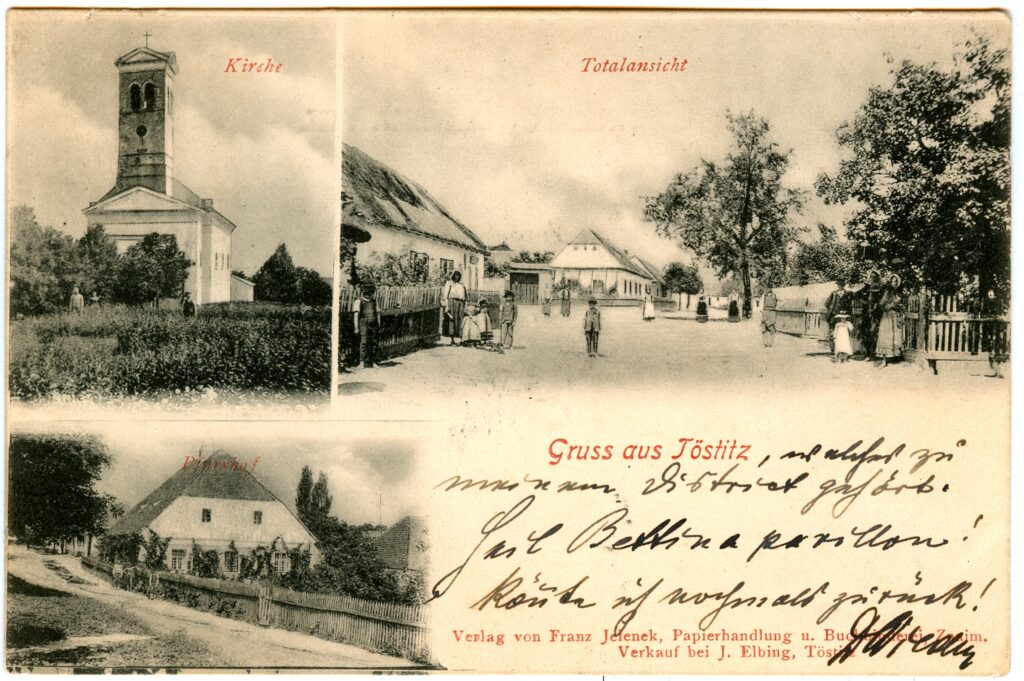 Kirche
Totalansicht
Pfarrhof
Gruss aus Töstitz, welches zu
meinem District gehört.
Heil Bettina pavillon!
Könte ich nochmals zurück!
Verlag von Franz Jelenek, Papierhandlung u. Buchbinderei, Znaim.
Verkauf bei J. Elbing, Töstitz